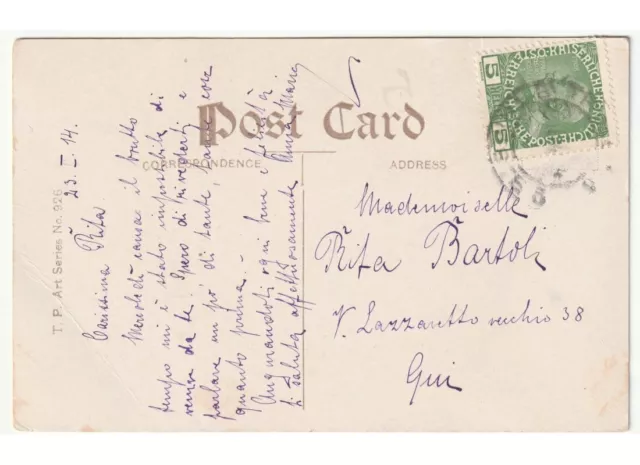 Post Card
CORRESPONDENCE
ADDRESS
T. P. Art Series No. 926
23. I. 14.
Carissima Rita
Mercoledì causa il brutto
tempo mi è stato impossibile di
venire da te. Spero di rivederti e
parlare un pò di tante, tante cose
quanto prima. –
Augurandoti ogni bene e felicità
ti saluta affettuosamente Anna Maria
Mademoiselle
Rita Bartoli
V. Lazzaretto vecchio 38
Qui
5
5
KAISERLICHE KÖNIGLICHE
ÖSTERREICHISCHE POST